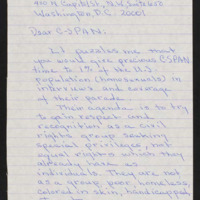 400 N. Capitol St., N.W. Suite 650
Washington, D.C. 20001
Dear C-SPAN:
It puzzles me that
you would give precious C-SPAN
time to 1% of the U.S.
population (homosexuals) in
interviews and coverage
of their parade.
Their agenda is to try
to gain respect and
recognition as a civil
rights group seeking
special privileges, not
equal rights which they
already have as
individuals. They are not
as a group poor, homeless,
colored in skin, handicapped,